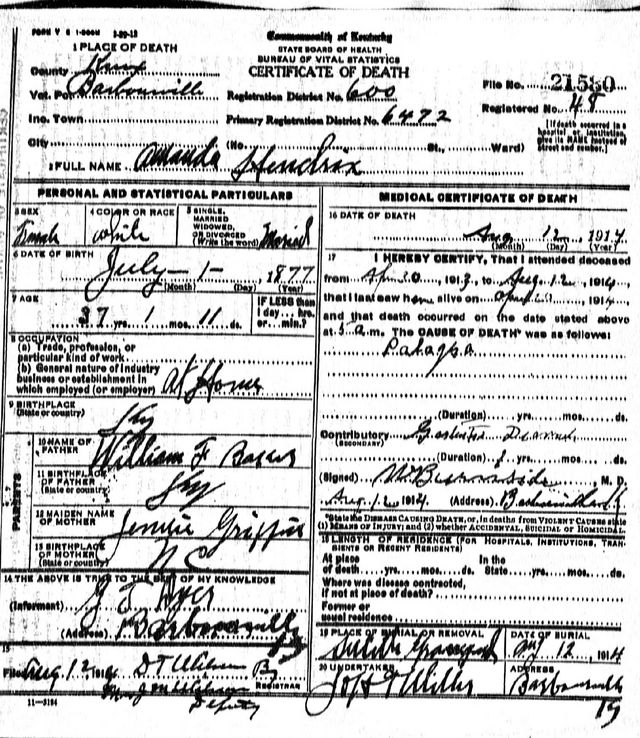 FORM V S 1-200M 3-29-13
Commonwealth of Kentucky
1 PLACE OF DEATH
STATE BOARD OF HEALTH
BUREAU OF VITAL STATISTICS
CERTIFICATE OF DEATH
County Knox
File No. 21580
Vot. Pct Barbourville
Registration District No. 600
Registered No. 48
Inc. Town
Primary Registration District No. 6472
[If death occurred in a hospital or institution, give its NAME instead of street and number.]
City (No. St., Ward)
2 FULL NAME Amanda Hendrix
PERSONAL AND STATISTICAL PARTICULARS
3 SEX Female
4 COLOR OR RACE white
5 SINGLE, MARRIED WIDOWED, OR DIVORCED (Write the word) Married
6 DATE OF BIRTH
July 1 1877
(Month) (Day) (Year)
7 AGE
37 yrs. 1 mos. 11 ds.
IF LESS than 1 day... hrs. or... min.?
8 OCCUPATION
(a) Trade, profession, or particular kind of work
(b) General nature of industry business or establishment in which employed (or employer) At Home
9 BIRTHPLACE (State or country) Ky
PARENTS
10 NAME OF FATHER William F
11 BIRTHPLACE OF FATHER (State or country) Ky
12 MAIDEN NAME OF MOTHER Jennie Griffin
13 BIRTHPLACE OF MOTHER (State or country) N C
14 THE ABOVE IS TRUE TO THE BEST OF MY KNOWLEDGE
(Informant) G T
(Address) Barbourville Ky
15
Filed Aug 12 1914 D T Wilson
REGISTRAR
Deputy
11-3184
MEDICAL CERTIFICATE OF DEATH
16 DATE OF DEATH
Aug 12 1914
(Month) (Day) (Year)
17 I HEREBY CERTIFY, That I attended deceased
from 1913, to Aug 12, 1914
that I last saw h alive on 1914
and that death occurred on the date stated above
at 5 a.m. The CAUSE OF DEATH* was as follows:
(Duration) yrs. mos. ds.
Contributory
(SECONDARY)
(Duration) yrs. mos. ds.
(Signed) M. D.
Aug 12 1914 (Address) Barbourville Ky
*State the DISEASE CAUSING DEATH, or, in deaths from VIOLENT CAUSES state (1) MEANS OF INJURY; and (2) whether ACCIDENTAL, SUICIDAL or HOMICIDAL
18 LENGTH OF RESIDENCE (FOR HOSPITALS, INSTITUTIONS, TRANSIENTS OR RECENT RESIDENTS)
At place of death yrs. mos. ds. In the State yrs. mos. ds.
Where was disease contracted, if not at place of death?
Former or usual residence
19 PLACE OF BURIAL OR REMOVAL
Graveyard
DATE OF BURIAL
Aug 12, 1914
20 UNDERTAKER
ADDRESS
Barbourville